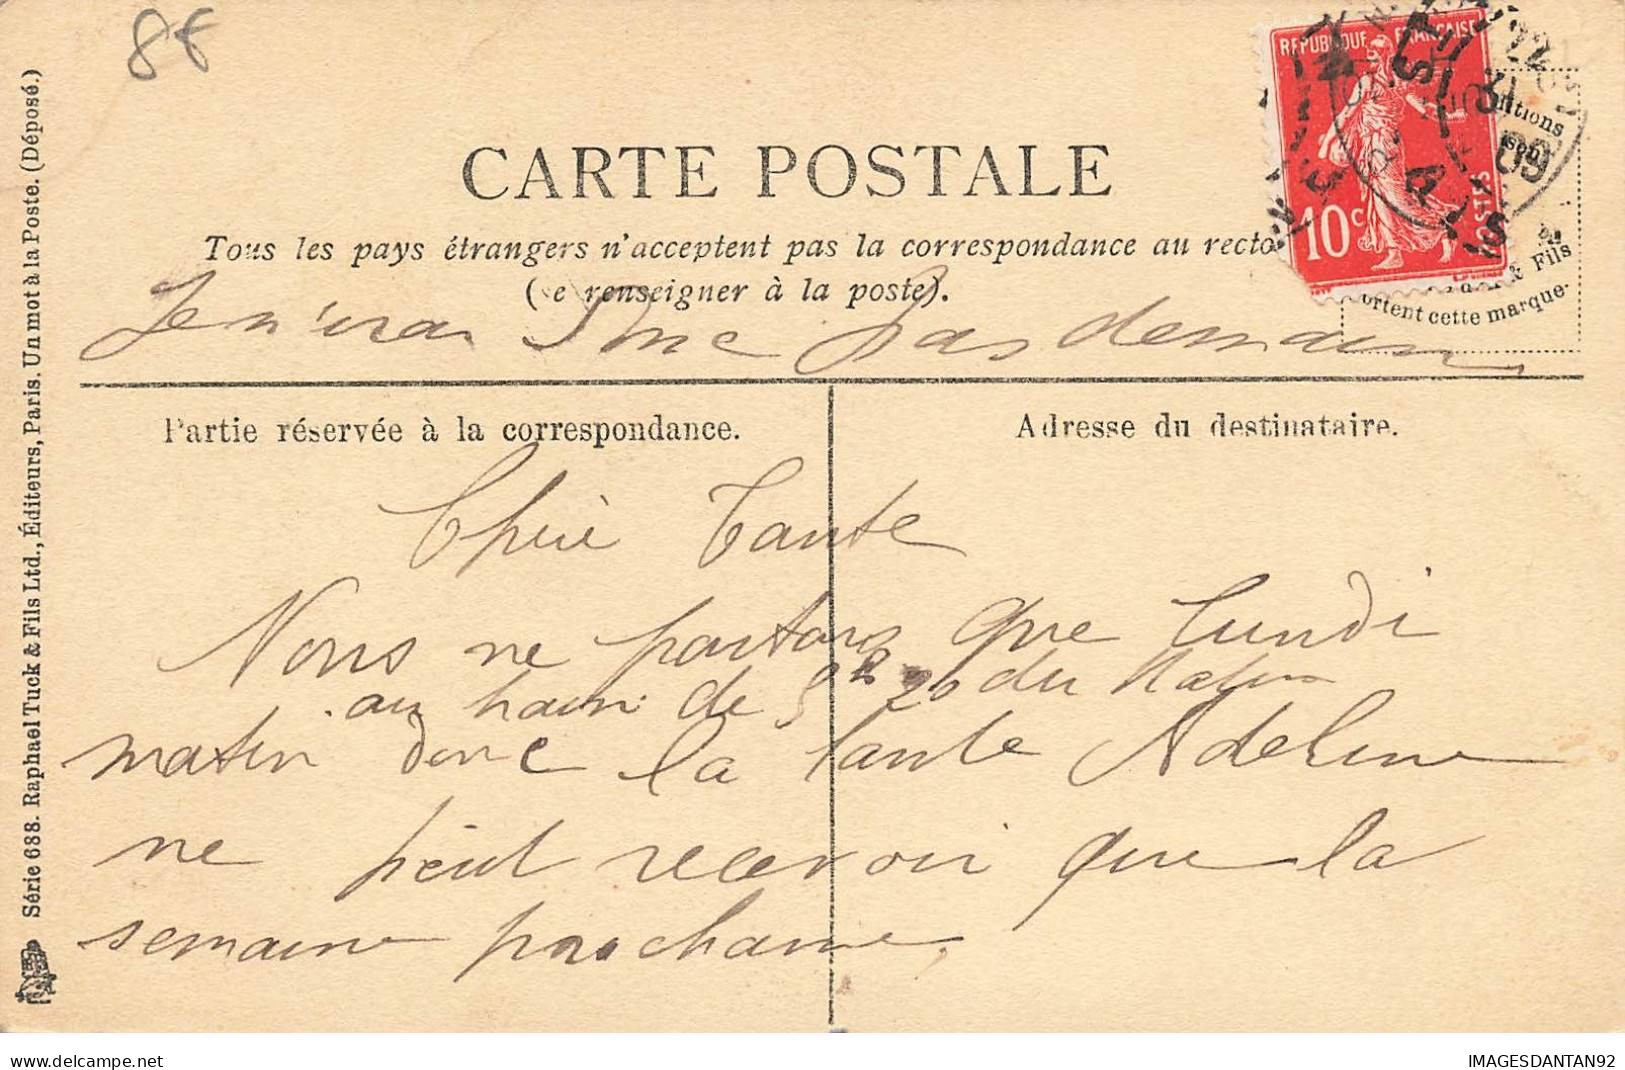 8f
CARTE POSTALE
Tous les pays étrangers n'acceptent pas la correspondance au recto
(Se renseigner à la poste).
REPUBLIQUE FRANÇAISE
10c
POSTES
09
& Fils
portent cette marque.
Je n'irai donc pas demain
Partie réservée à la correspondance.
Adresse du destinataire.
Chère Tante
Nous ne partons que lundi
au train de 8h 20 du matin
matin donc la tante Adeline
ne peut recevoir que la
semaine prochaine.
Série 688. Raphael Tuck & Fils Ltd., Éditeurs, Paris. Un mot à la Poste. (Déposé.)
delcampe.net
IMAGESDANTAN92